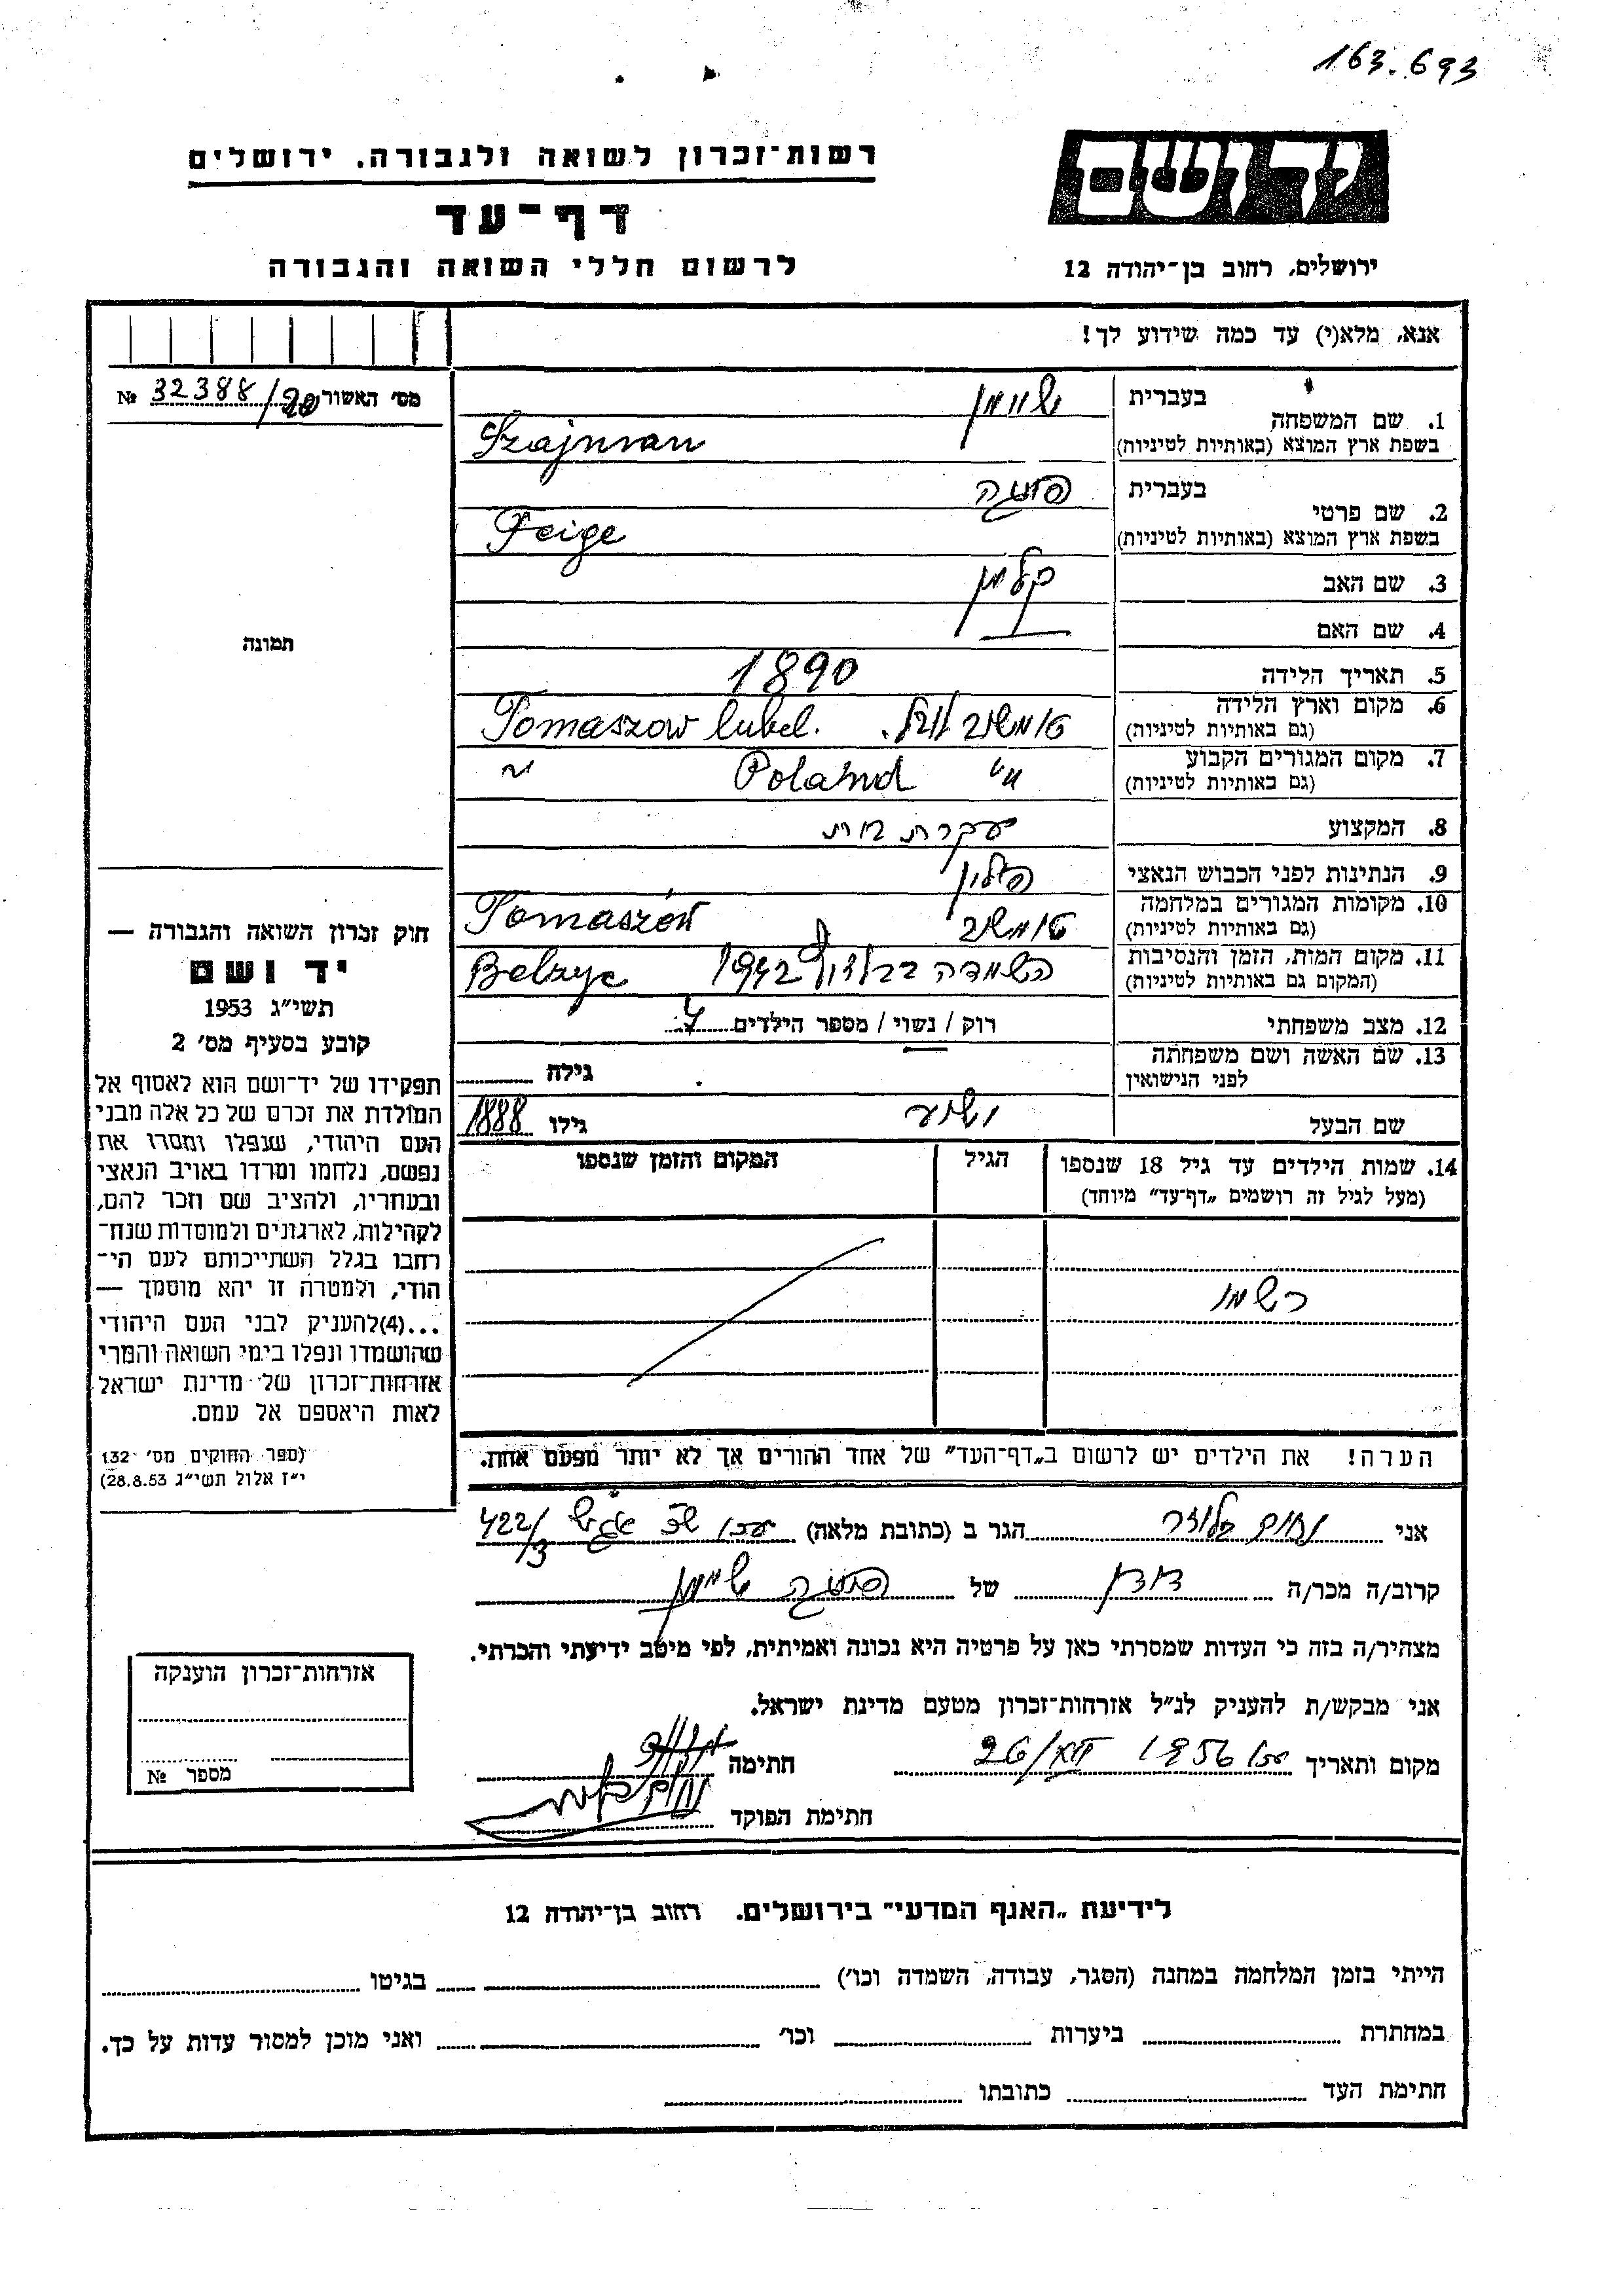 163.693
יד ושם
רשות־זכרון לשואה ולגבורה. ירושלים
דף־עד
לרשום חללי השואה והגבורה
ירושלים, רחוב בן־יהודה 12
אנא, מלא(י) עד כמה שידוע לך!
מס׳ האשור 32388/90 №
1. שם המשפחה
בעברית שיינמן
בשפת ארץ המוצא (באותיות לטיניות) Szajnman
2. שם פרטי
בעברית פייגה
בשפת ארץ המוצא (באותיות לטיניות) Feige
3. שם האב קלמן
4. שם האם —
5. תאריך הלידה 1890
6. מקום וארץ הלידה
(גם באותיות לטיניות) טומשוב לובל. Tomaszow lubel.
7. מקום המגורים הקבוע
(גם באותיות לטיניות) " Poland "
8. המקצוע עקרת בית
9. הנתינות לפני הכבוש הנאצי פולין
10. מקומות המגורים במלחמה
(גם באותיות לטיניות) טומשוב Tomaszów
11. מקום המות, הזמן והנסיבות
(המקום גם באותיות לטיניות) השמדה בבלזץ 1942 Belzyc
12. מצב משפחתי רוק / נשוי / מספר הילדים 4
13. שם האשה ושם משפחתה
לפני הנישואין
גילה
שם הבעל יהושע גילו 1888
14. שמות הילדים עד גיל 18 שנספו
(מעל לגיל זה רושמים „דף־עד״ מיוחד)
הגיל
המקום והזמן שנספו
רשמו
הערה! את הילדים יש לרשום ב„דף־העד״ של אחד ההורים אך לא יותר מפעם אחת.
אני נחום הגר ב (כתובת מלאה) עכו 422/3
קרוב/ה מכר/ה דודן של פייגה שיינמן
מצהיר/ה בזה כי העדות שמסרתי כאן על פרטיה היא נכונה ואמיתית, לפי מיטב ידיעתי והכרתי.
אני מבקש/ת להעניק לנ״ל אזרחות־זכרון מטעם מדינת ישראל.
מקום ותאריך עכו 1956 26/XII חתימה
חתימת הפוקד
תמונה
חוק זכרון השואה והגבורה —
יד ושם
תשי״ג 1953
קובע בסעיף מס׳ 2
תפקידו של יד־ושם הוא לאסוף אל
המולדת את זכרם של כל אלה מבני
העם היהודי, שנפלו ומסרו את
נפשם, נלחמו ומרדו באויב הנאצי
ובעוזריו, ולהציב שם וזכר להם,
לקהילות, לארגונים ולמוסדות שנח־
רבו בגלל השתייכותם לעם הי־
הודי, ולמטרה זו יהא מוסמך —
...(4)להעניק לבני העם היהודי
שהושמדו ונפלו בימי השואה והמרי
אזרחות־זכרון של מדינת ישראל
לאות היאספם אל עמם.
(ספר החוקים מס׳ 132
י״ז אלול תשי״ג 28.8.53)
אזרחות־זכרון הוענקה
מספר №
לידיעת „האגף המדעי״ בירושלים. רחוב בן־יהודה 12
הייתי בזמן המלחמה במחנה (הסגר, עבודה, השמדה וכו׳) בגיטו
במחתרת ביערות וכו׳ ואני מוכן למסור עדות על כך.
חתימת העד כתובתו